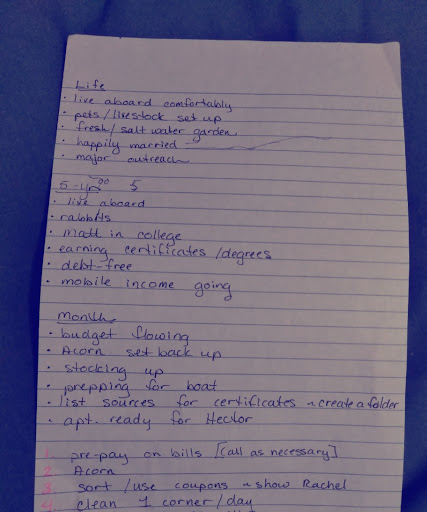 Life
· live aboard comfortably
· pets/livestock set up
· fresh/salt water garden
· happily married
· major outreach
5
· live aboard
· rabbits
· Matt in college
· earning certificates/degrees
· debt-free
· mobile income going
Month
· budget flowing
· Acorn set back up
· stocking up
· prepping for boat
· list sources for certificates create a folder
· apt. ready for Hector
1. pre-pay on bills [call as necessary]
2. Acorn
3. sort/use coupons show Rachel
4. clean 1 corner/day